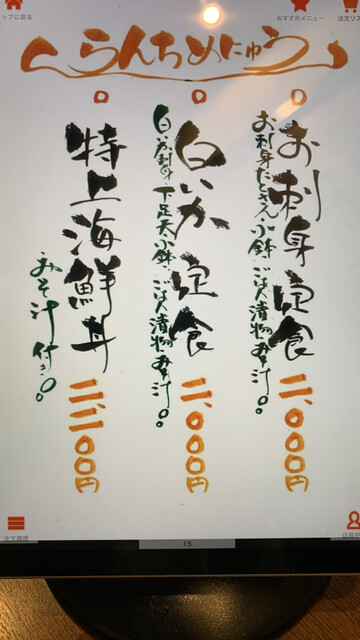 ップに戻る
おすすめメニュー
注文リス
らんちめにゅう
お刺身定食
お刺身たくさん、小鉢、ごはん、漬物、みそ汁!!
二、〇〇〇円
白いか定食
白いか刺身、下足天、小鉢、ごはん、漬物、みそ汁!!
二、〇〇〇円
特上海鮮丼
みそ汁付き!!
二、二〇〇円
注文履歴
15
店員呼